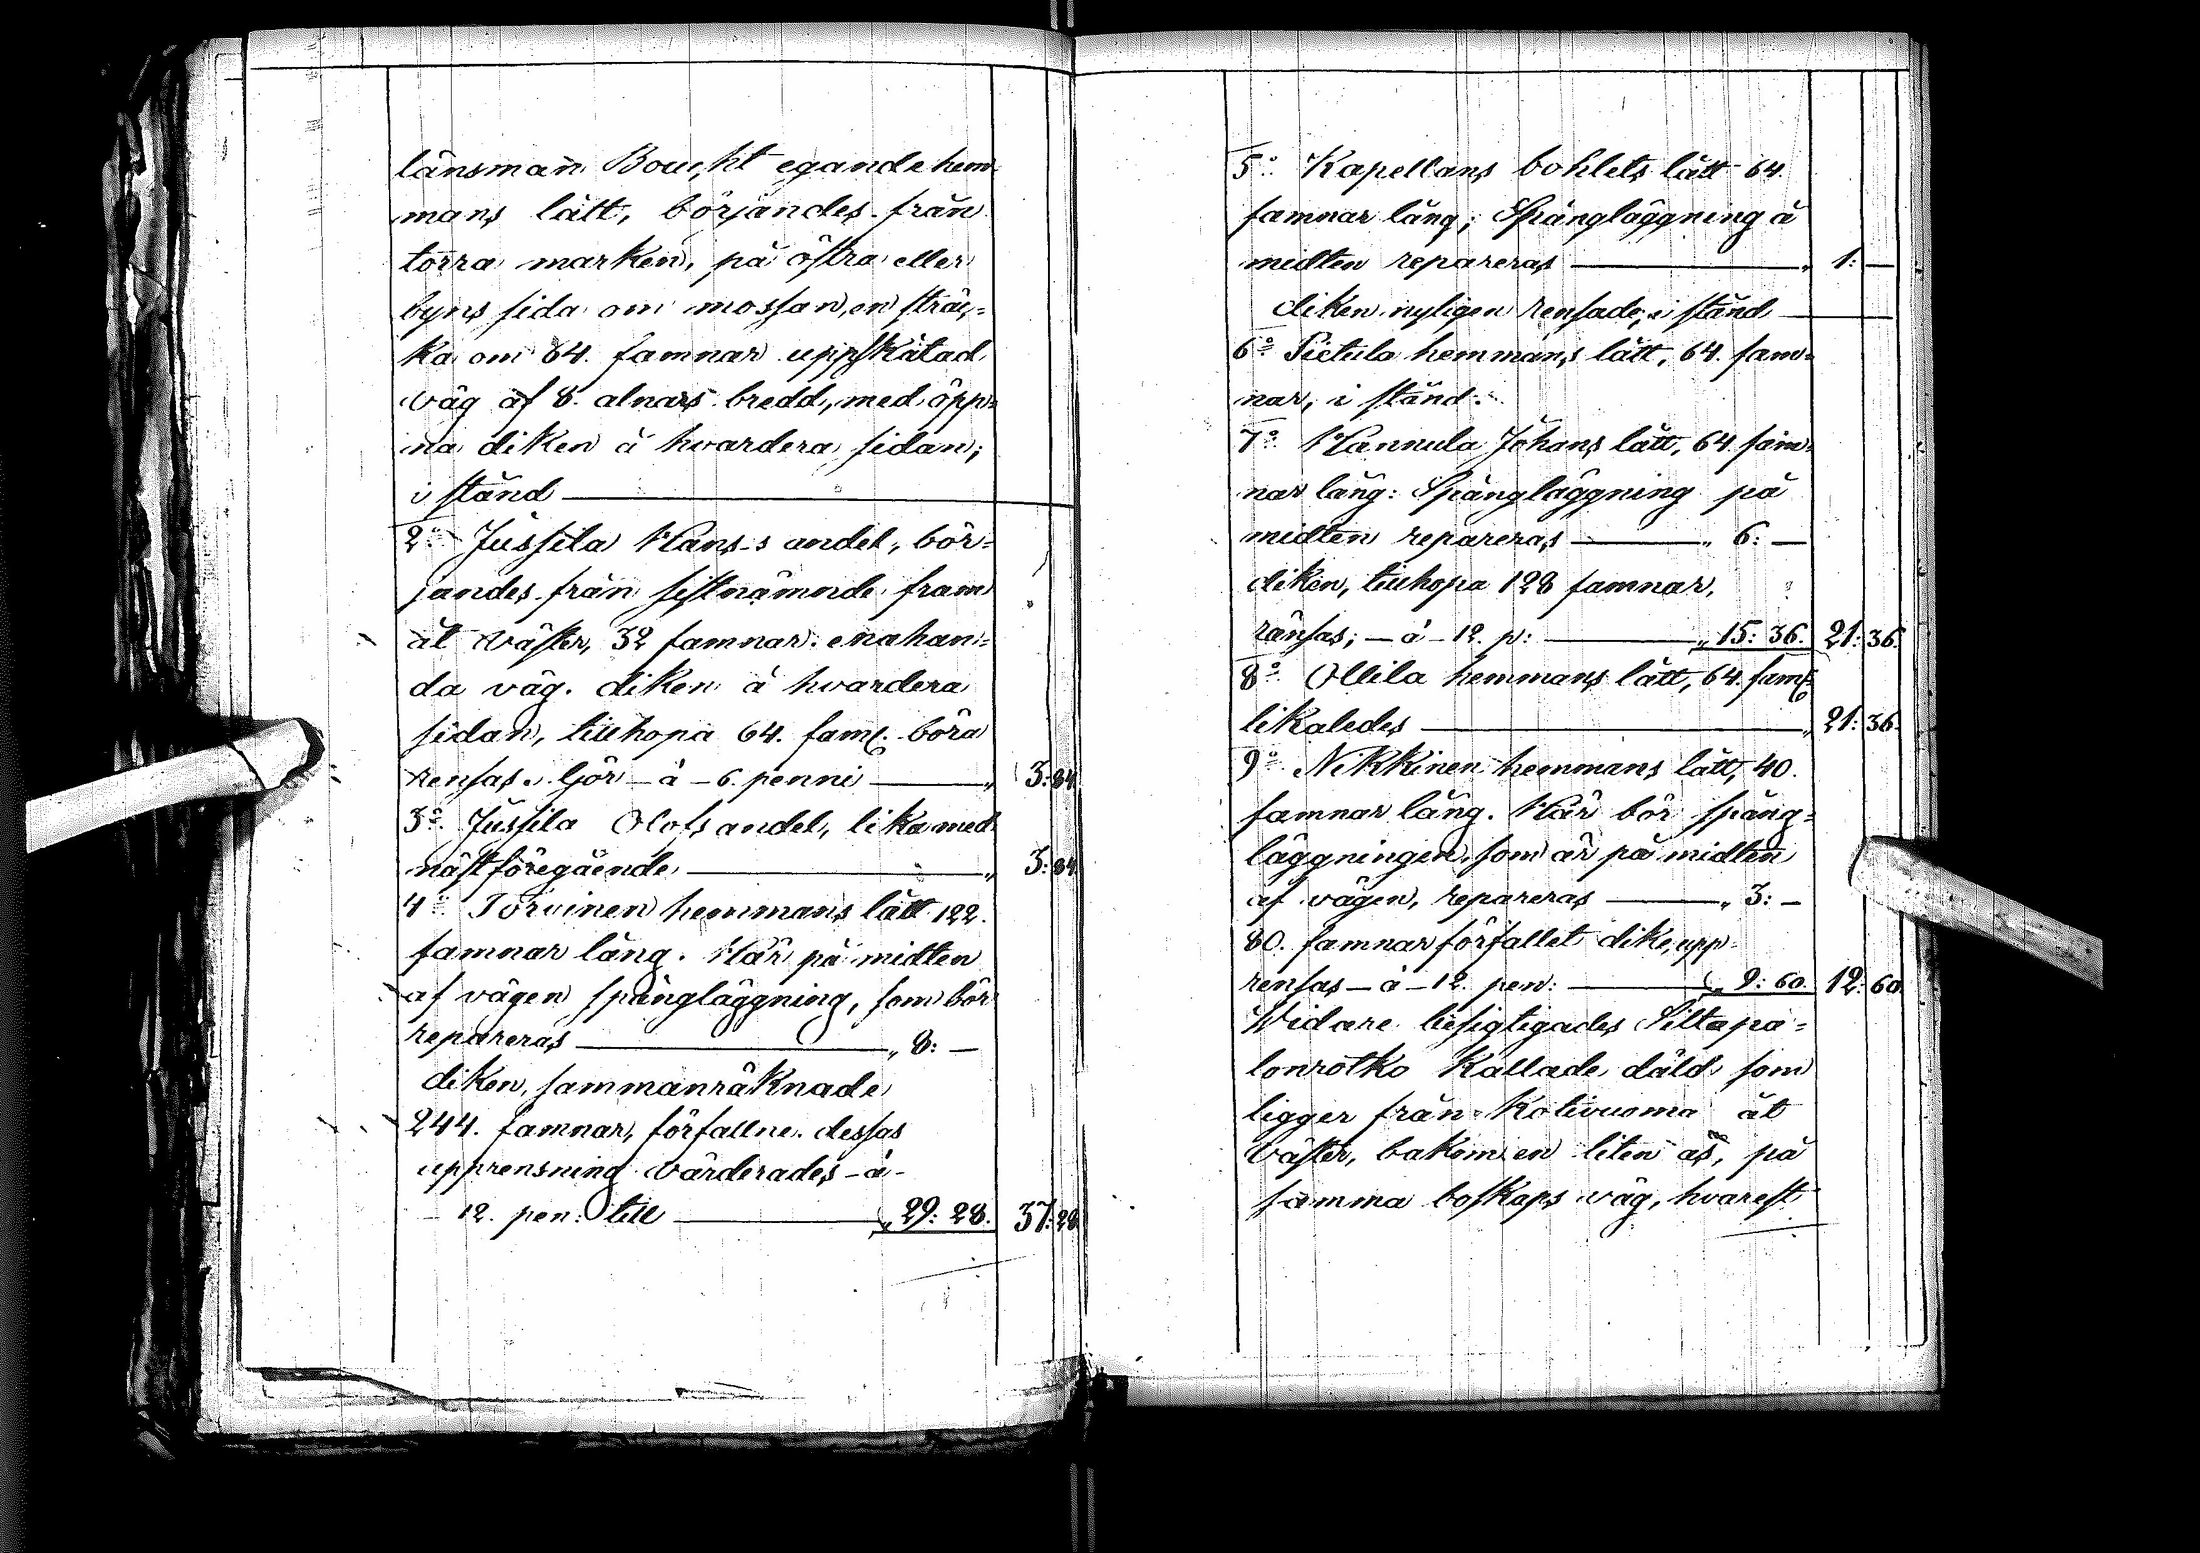 länsman Boucht egande hem
mans lått, börjandes från
torra marken, på östra eller
byns sida om mossan, en sträc-
ka om 64. famnar uppskåtad
väg af 8. alnars bredd, med öpp-
na diken å hvardera sidan;
i stånd
2:o Jussila Hans-s andel, bör-
jandes från sistnämnde fram
åt väster, 32 famnar: enahan-
da väg. diken å hvardera
sidan, tillhopa 64. famf. böra
rensas. Gör - à - 6. penni " 3: 84
3:o Jussila Olofs andel, lika med
nästföregående " 3: 84
4:o Torvinen hemmans lått 122.
famnar lång. Här på midten
af vägen spånglåggning, som bör
repareras " 8: —
diken, sammanräknade
244. famnar, förfallne. dessas
upprensning värderades - à -
12. pen: till " 29: 28. 37: 28
5:o Kapellans bohlets lått 64.
famnar lång; Spångläggning å
midten repareras " 1: —
diken nyligen rensade, i stånd
6:o Pietula hemmans lått, 64. fam-
nar, i stånd.
7:o Hannula Johans lått, 64. fam-
nar lång: Spångläggning på
midten repareras " 6: —
diken, tillhopa 128 famnar,
ränsas; - à - 12. p: " 15: 36. 21: 36.
8:o Ollila hemmans lått, 64. famf.
likaledes " 21: 36.
9:o Nikkinen hemmans lått, 40.
famnar lång. Här bör spång-
läggningen, som är på midten
af vägen, repareras " 3: —
80. famnar förfallet dike, upp-
rensas - à - 12. pen: " 9: 60. 12: 60
Widare besigtigades Siltapa-
lonrotko kallade däld, som
ligger från Kotivuoma åt
Väster, bakom en liten ås, på
samma boskaps väg, hvarest